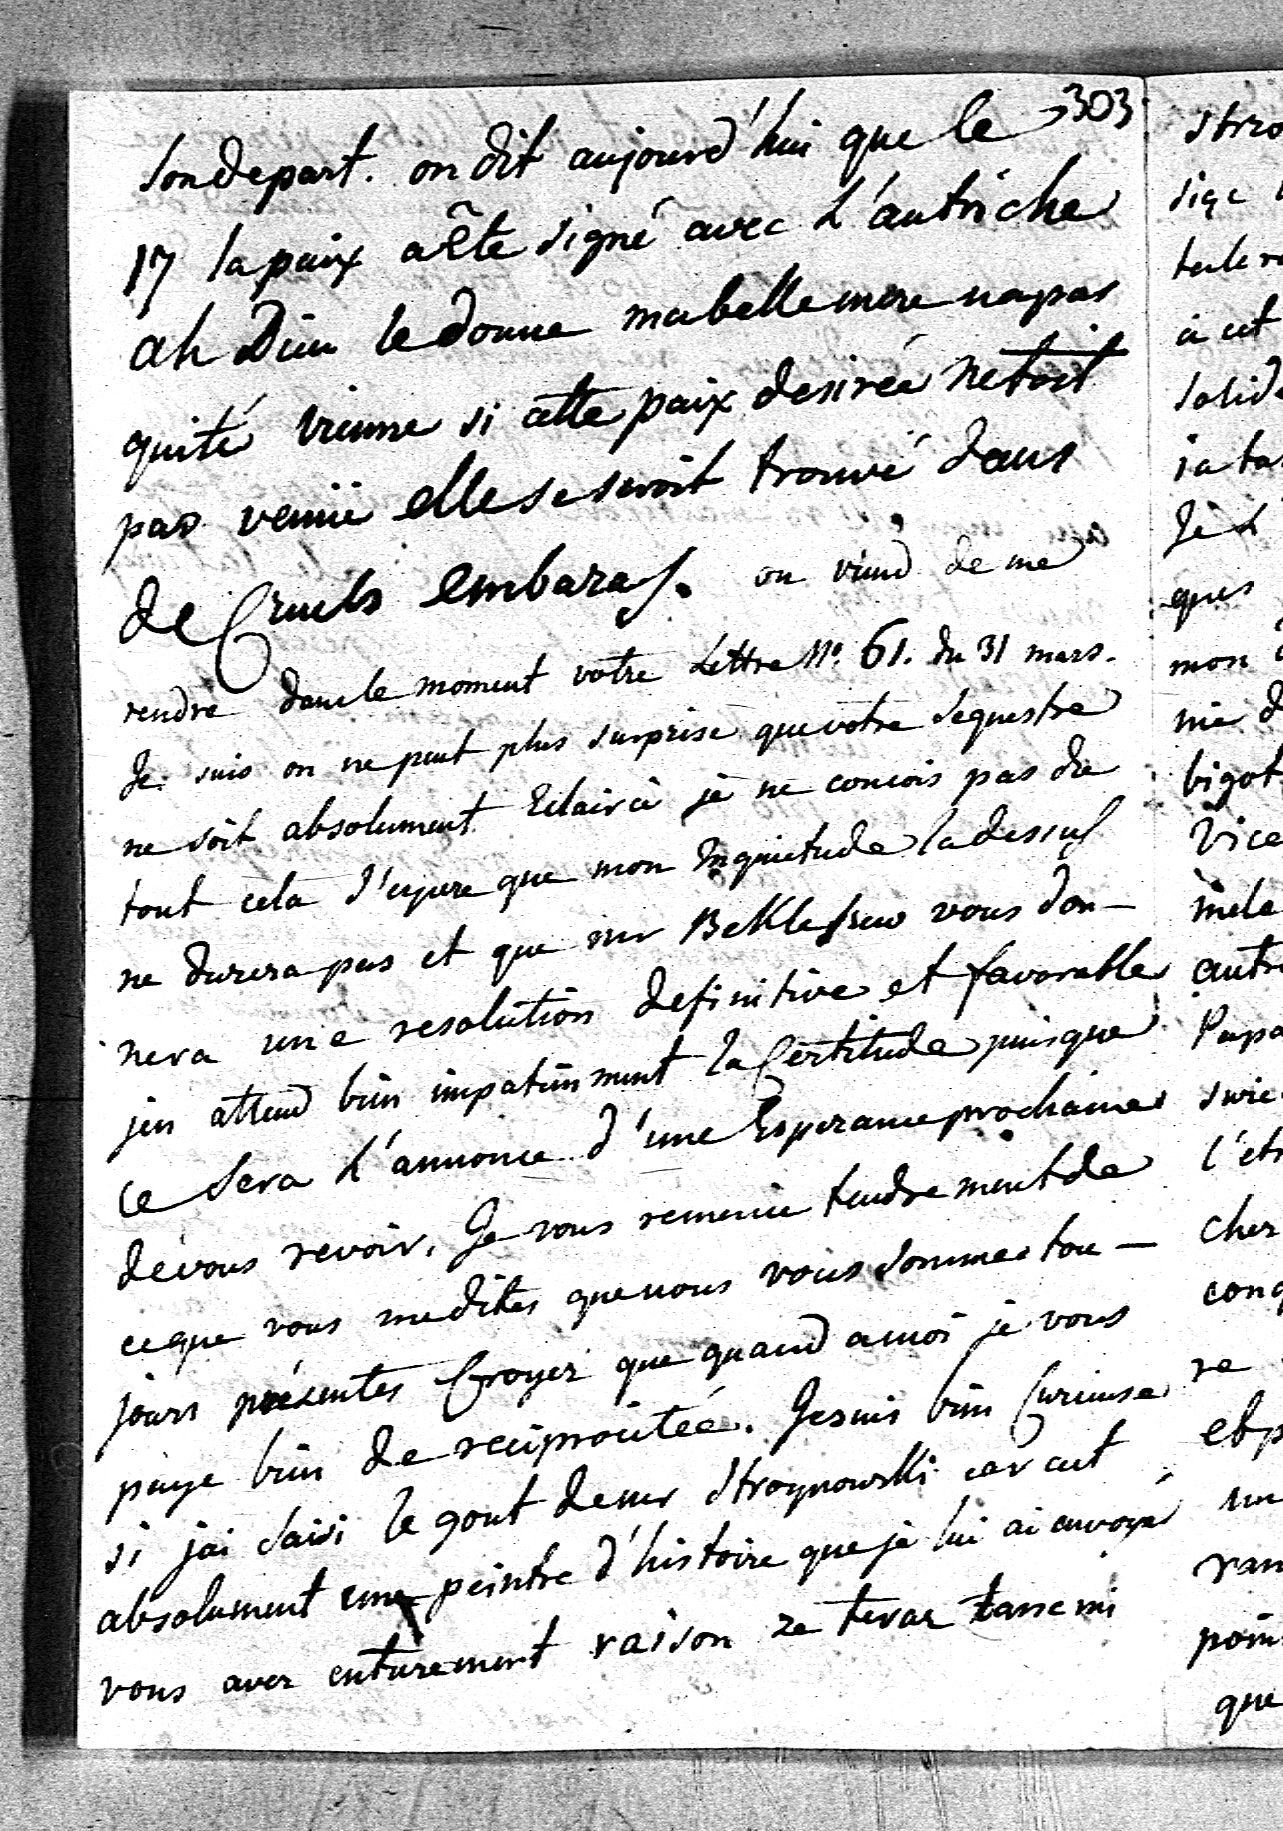 303
son depart. on dit aujourd'hui que le
17 la paix a Ete signé avec L'autriche
ah Dieu le donne ma belle mere na pas
quité vienne si cette paix desirée netoit
pas venüe elle se seroit trouvé dans
de Cruels embaras. on viend de me
rendre dans le moment votre Lettre No. 61. du 31 mars.
Je suis on ne peut plus surprise que votre sequestre
ne soit absolument Eclairci je ne concois pas du
tout cela J'espere que mon Inquietude la dessus
ne durera pas et que mr Bekleschew vous don-
nera une resolution definitive et favorable
jen attend bien impatiemment la Certitude puisque
ce sera L'annonce d'une Esperance prochaine
de vous revoir. Je vous remercie tendrement de
ce que vous me dites que nous vous sommes tou-
jours présentes Croyez que quand a moi je vous
paye bien de reciprocitée. Je suis bien Curieuse
si jai saisi le gout de mr Stroynowski car cet
absolument une peintre d'histoire que je lui ai envoyé
vous avez entierement raison ze teraz tanse mi